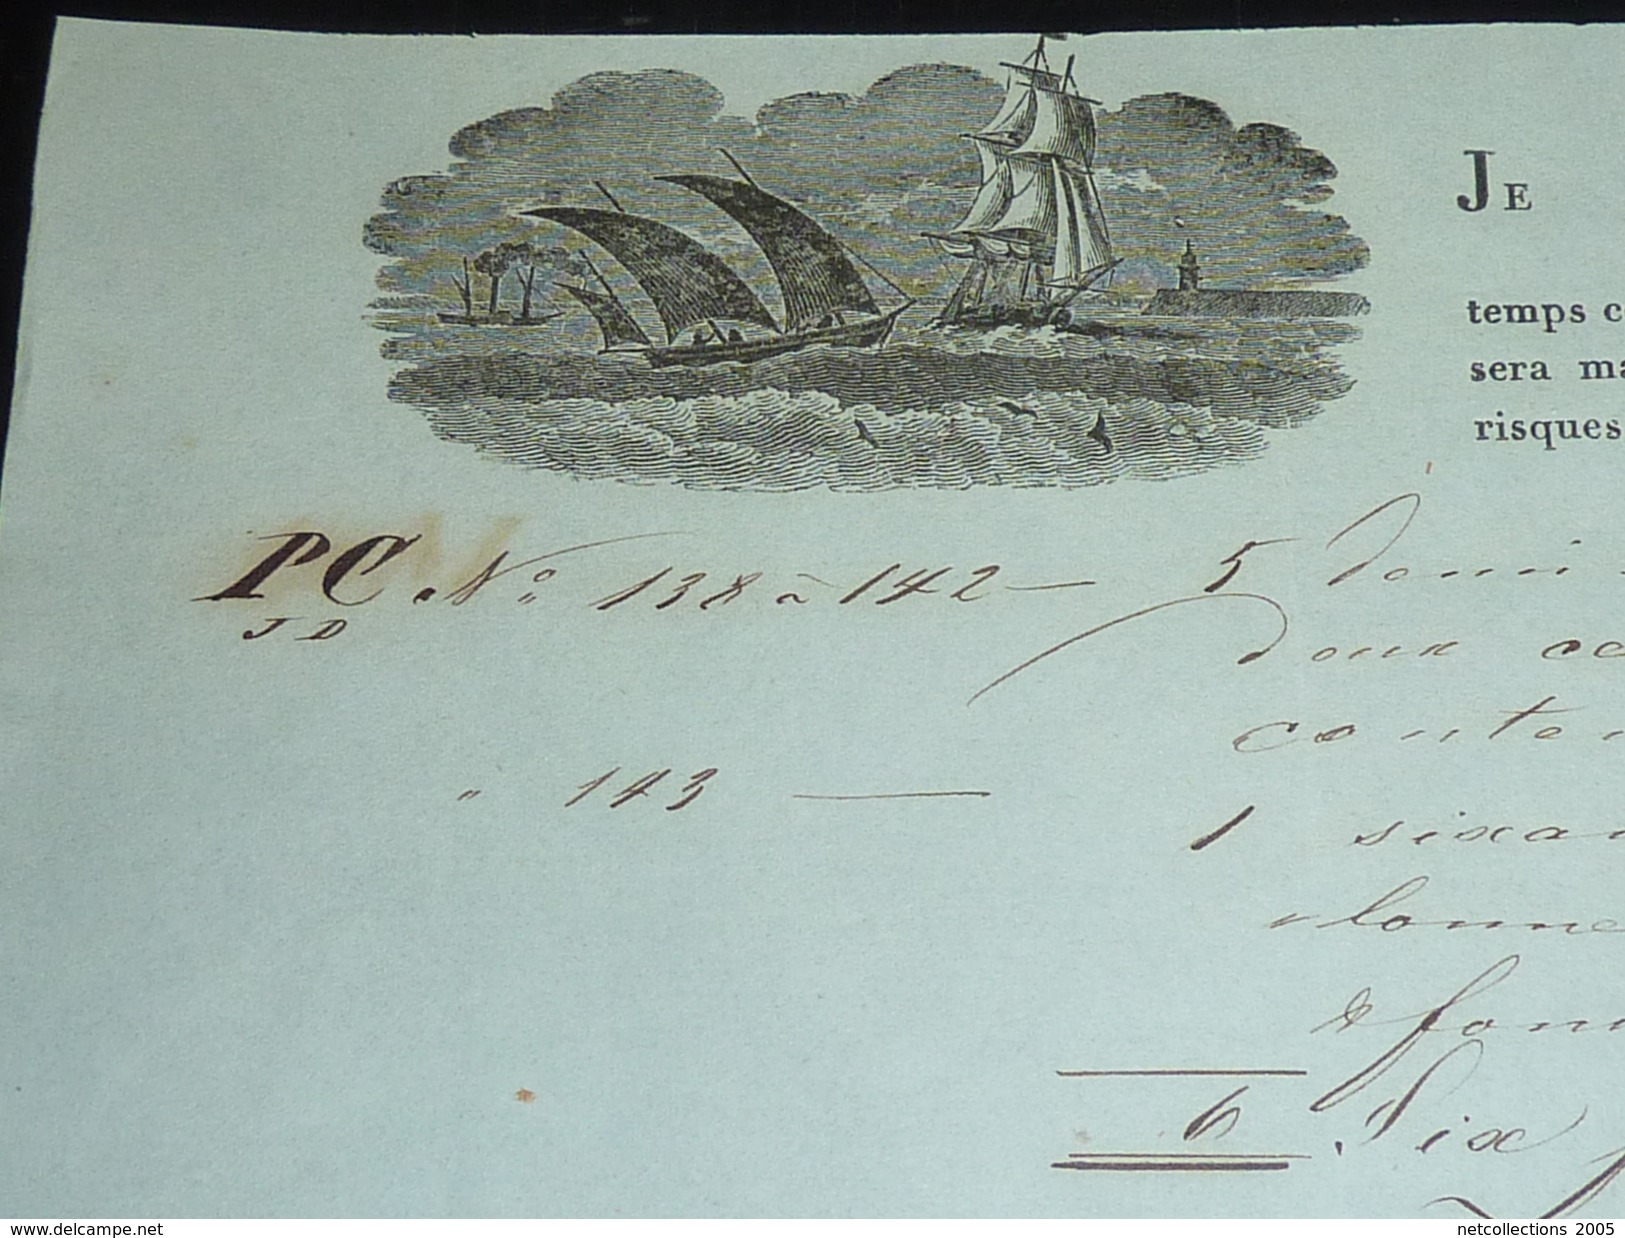 JE
temps c
sera ma
risques
PC No 138 à 142 — 5 demi
JD
deux ce
conten
" 143 — 1 sixa
& fon
6 Six
www.delcampe.net
netcollections 2005